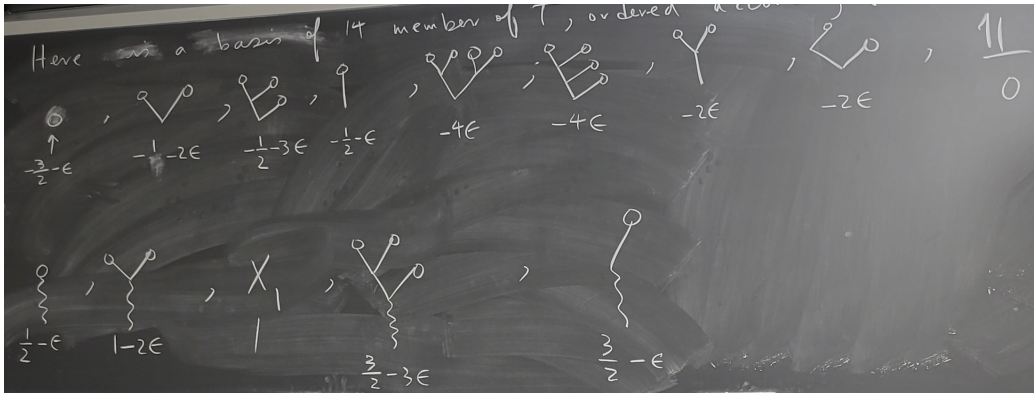 Here is a basis of 14 member of T, ordered
, , , , , , , , 𝟙
-3/2-ϵ -1/2-2ϵ -1/2-3ϵ -1/2-ϵ -4ϵ -4ϵ -2ϵ -2ϵ 0
, , X₁ , ,
1/2-ϵ 1-2ϵ 1 3/2-3ϵ 3/2-ϵ